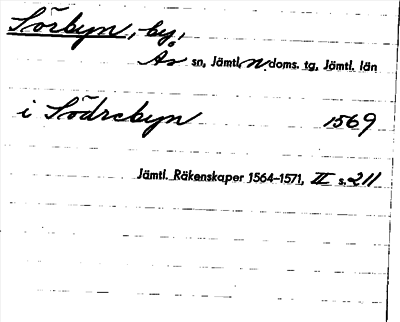 Sörbyn, by,
Ås sn, Jämtl. n. doms. tg, Jämtl. län
i Södrebyn 1569
Jämtl. Räkenskaper 1564-1571, II s. 211